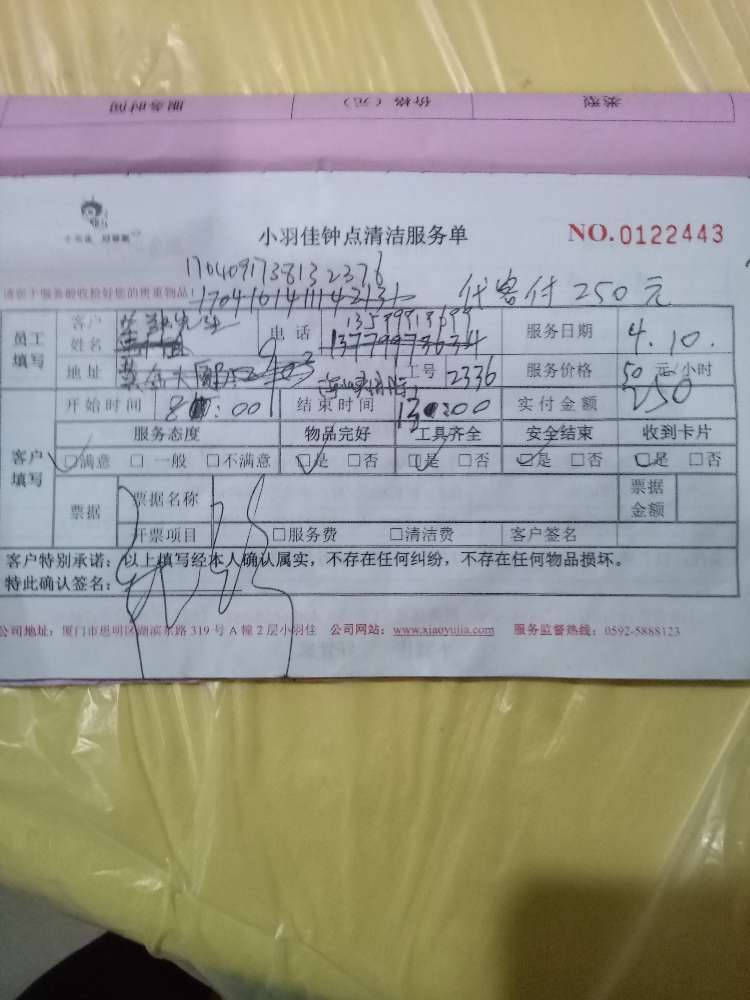 服务时间 价格（元） 类型
小羽佳钟点清洁服务单 NO.0122443
1704091738132376
请在于服务前收捡好您的贵重物品： 代客付250元
员工填写 客户姓名 先生 电话 服务日期 4.10.
地址 工号 2336 服务价格 50元/小时
开始时间 8:00 结束时间 13:00 实付金额 250
客户填写 服务态度 物品完好 工具齐全 安全结束 收到卡片
☑满意 □一般 □不满意 ☑是 □否 ☑是 □否 ☑是 □否 ☑是 □否
票据 票据名称 票据金额
开票项目 □服务费 □清洁费 客户签名
客户特别承诺：以上填写经本人确认属实，不存在任何纠纷，不存在任何物品损坏。
特此确认签名：
公司地址：厦门市思明区湖滨东路319号A幢2层小羽佳 公司网站：www.xiaoyujia.com 服务监督热线：0592-5888123